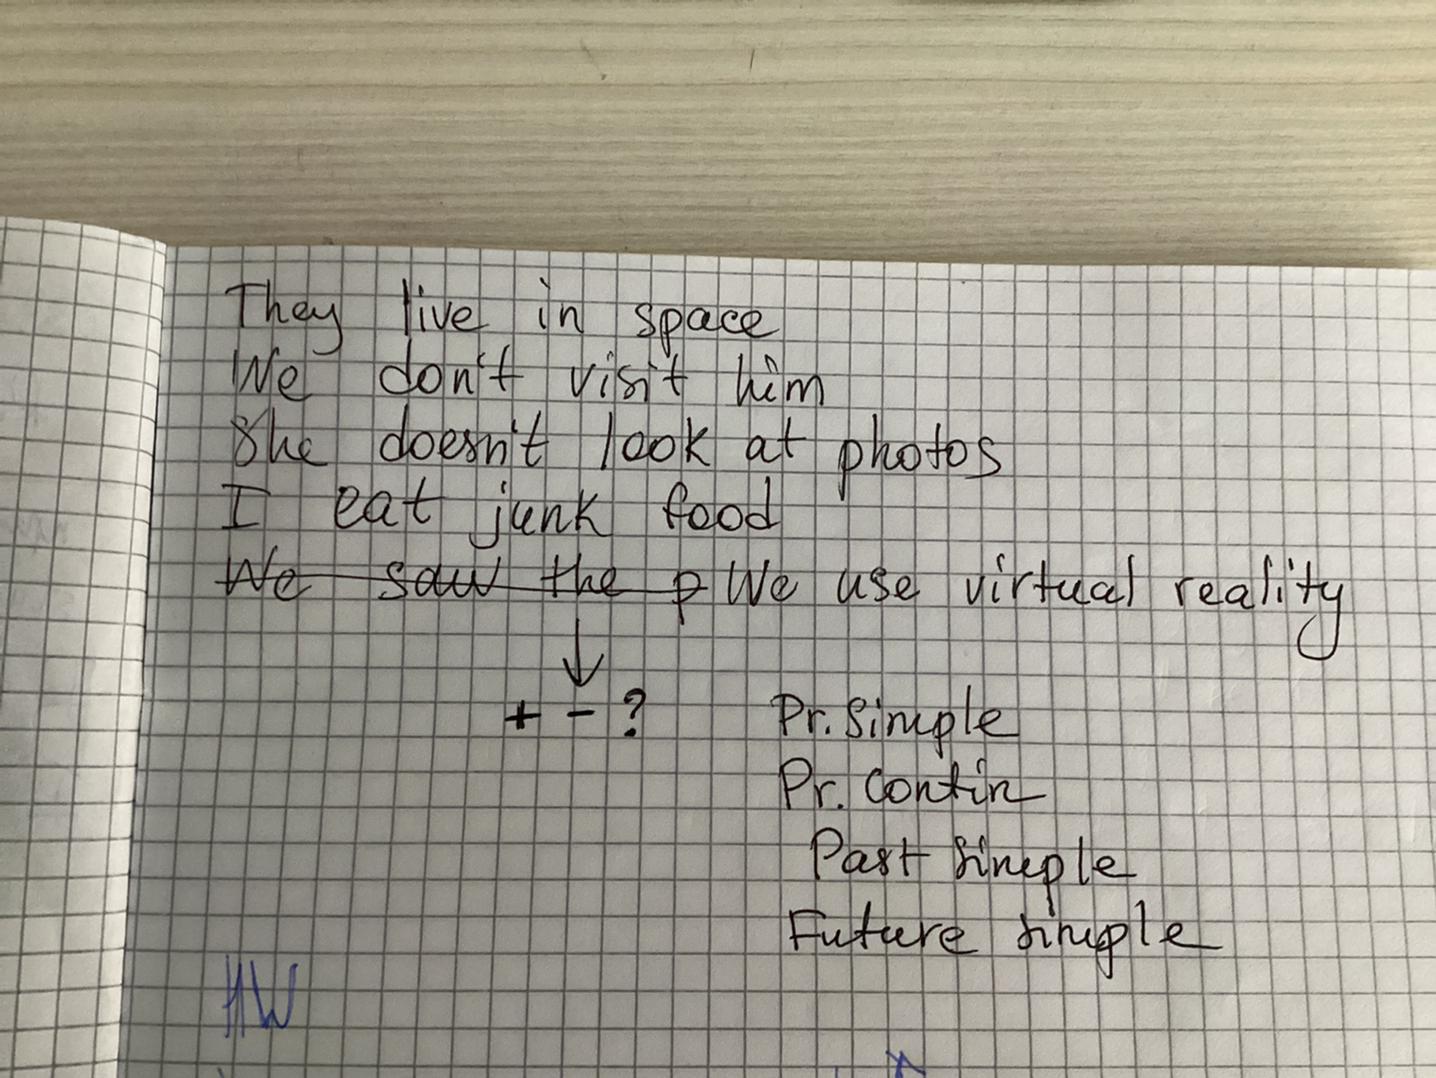 They live in space
We don't visit him
She doesn't look at photos
I eat junk food
We saw the p We use virtual reality
+ - ? Pr. Simple
Pr. Contin
Past Simple
Future simple
HW